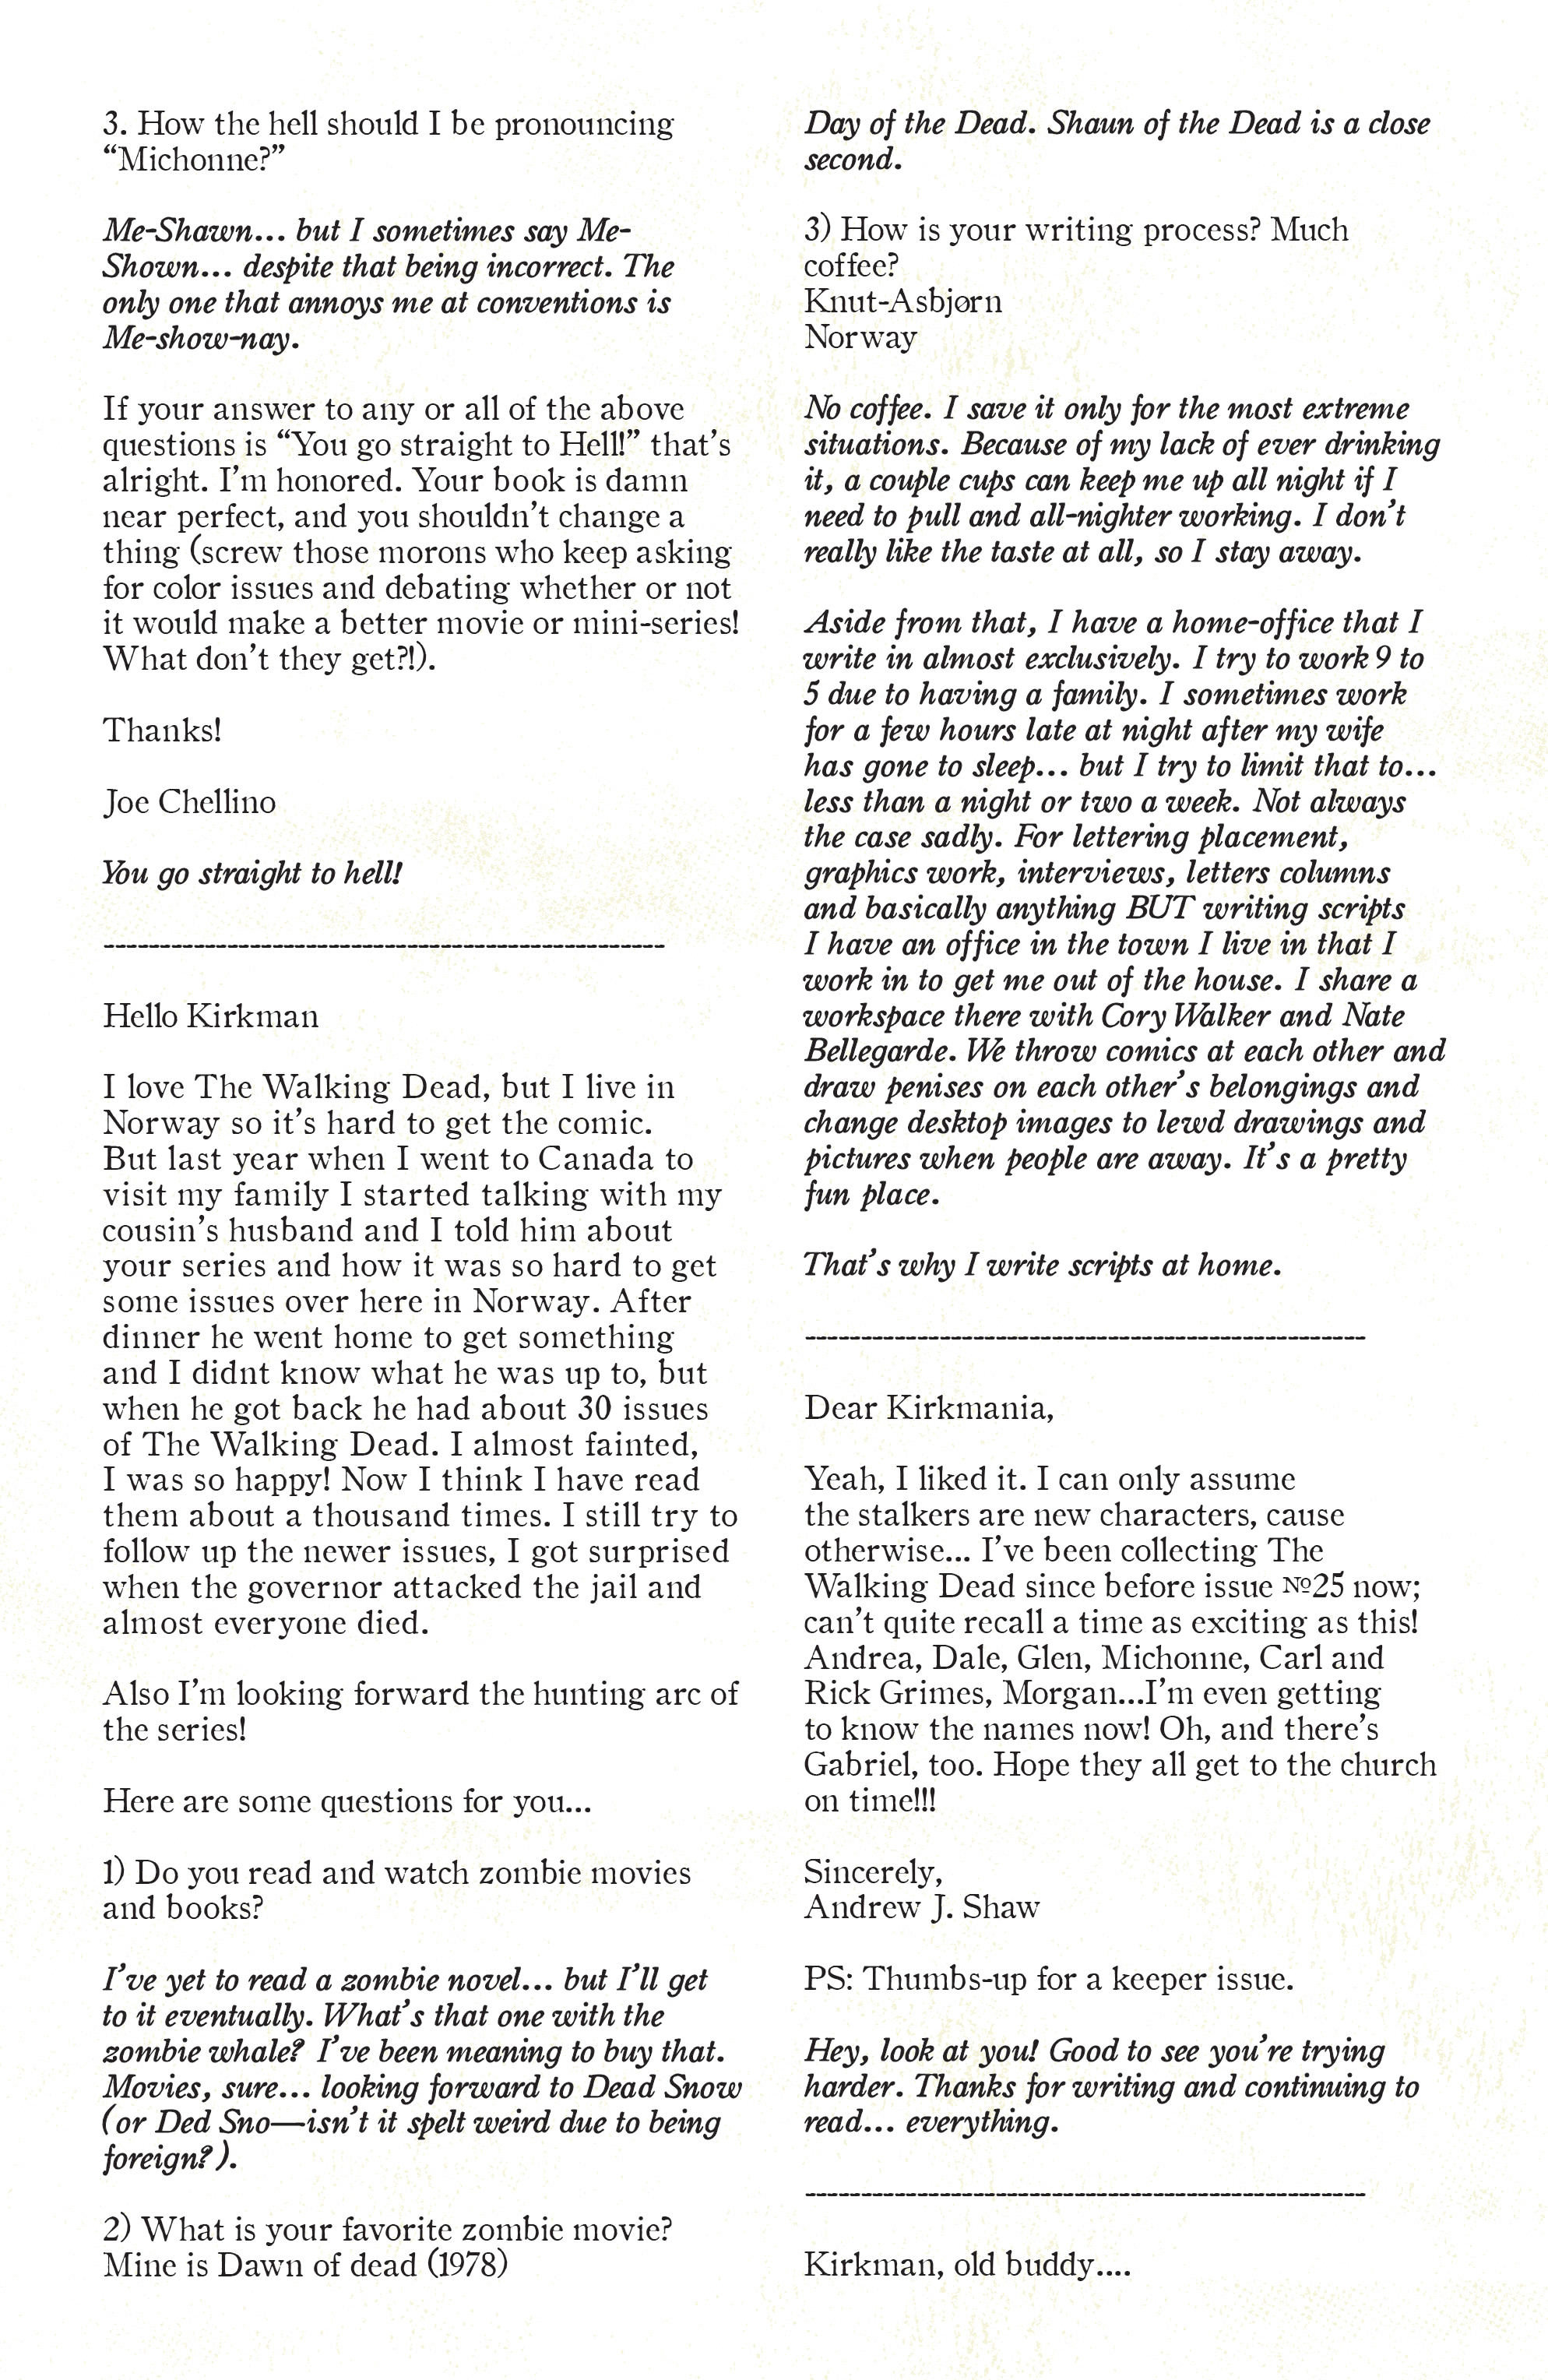 3. How the hell should I be pronouncing
“Michonne?”
Me-Shawn... but I sometimes say Me-
Shown... despite that being incorrect. The
only one that annoys me at conventions is
Me-show-nay.
If your answer to any or all of the above
questions is “You go straight to Hell!” that’s
alright. I’m honored. Your book is damn
near perfect, and you shouldn’t change a
thing (screw those morons who keep asking
for color issues and debating whether or not
it would make a better movie or mini-series!
What don’t they get?!).
Thanks!
Joe Chellino
You go straight to hell!
--------------------------------------------------
Hello Kirkman
I love The Walking Dead, but I live in
Norway so it’s hard to get the comic.
But last year when I went to Canada to
visit my family I started talking with my
cousin’s husband and I told him about
your series and how it was so hard to get
some issues over here in Norway. After
dinner he went home to get something
and I didnt know what he was up to, but
when he got back he had about 30 issues
of The Walking Dead. I almost fainted,
I was so happy! Now I think I have read
them about a thousand times. I still try to
follow up the newer issues, I got surprised
when the governor attacked the jail and
almost everyone died.
Also I’m looking forward the hunting arc of
the series!
Here are some questions for you...
1) Do you read and watch zombie movies
and books?
I’ve yet to read a zombie novel... but I’ll get
to it eventually. What’s that one with the
zombie whale? I’ve been meaning to buy that.
Movies, sure... looking forward to Dead Snow
(or Ded Sno—isn’t it spelt weird due to being
foreign?).
2) What is your favorite zombie movie?
Mine is Dawn of dead (1978)
Day of the Dead. Shaun of the Dead is a close
second.
3) How is your writing process? Much
coffee?
Knut-Asbjørn
Norway
No coffee. I save it only for the most extreme
situations. Because of my lack of ever drinking
it, a couple cups can keep me up all night if I
need to pull and all-nighter working. I don’t
really like the taste at all, so I stay away.
Aside from that, I have a home-office that I
write in almost exclusively. I try to work 9 to
5 due to having a family. I sometimes work
for a few hours late at night after my wife
has gone to sleep... but I try to limit that to...
less than a night or two a week. Not always
the case sadly. For lettering placement,
graphics work, interviews, letters columns
and basically anything BUT writing scripts
I have an office in the town I live in that I
work in to get me out of the house. I share a
workspace there with Cory Walker and Nate
Bellegarde. We throw comics at each other and
draw penises on each other’s belongings and
change desktop images to lewd drawings and
pictures when people are away. It’s a pretty
fun place.
That’s why I write scripts at home.
--------------------------------------------------
Dear Kirkmania,
Yeah, I liked it. I can only assume
the stalkers are new characters, cause
otherwise... I’ve been collecting The
Walking Dead since before issue №25 now;
can’t quite recall a time as exciting as this!
Andrea, Dale, Glen, Michonne, Carl and
Rick Grimes, Morgan...I’m even getting
to know the names now! Oh, and there’s
Gabriel, too. Hope they all get to the church
on time!!!
Sincerely,
Andrew J. Shaw
PS: Thumbs-up for a keeper issue.
Hey, look at you! Good to see you’re trying
harder. Thanks for writing and continuing to
read... everything.
--------------------------------------------------
Kirkman, old buddy....